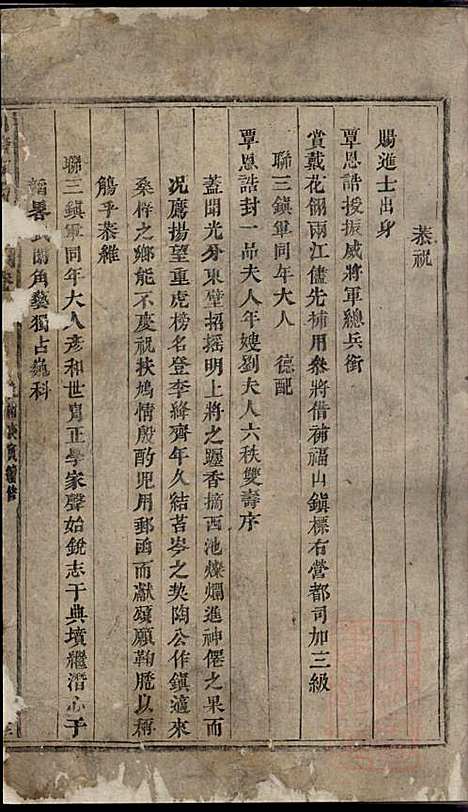 恭祝
賜進士出身
覃恩誥授振威將軍總兵銜
賞戴花翎兩江儘先補用叅將借補福山鎮標右營都司加三級
聯三鎮軍同年大人 德配
覃恩誥封一品夫人年嫂劉夫人六秩雙壽序
蓋聞光分東壁招搖明上將之躔香摘西池燦爛進神僊之果而
况鷹揚望重虎榜名登李絳齊年久結苔岑之契陶公作鎮適來
桑梓之鄉能不慶祝扶鳩情殷酌兕用郵函而獻頌願鞠𦡱以稱
觴乎恭維
聯三鎮軍同年大人彥和世胄正學家聲始銳志于典墳繼潛心于
韜畧 闈角藝獨占巍科